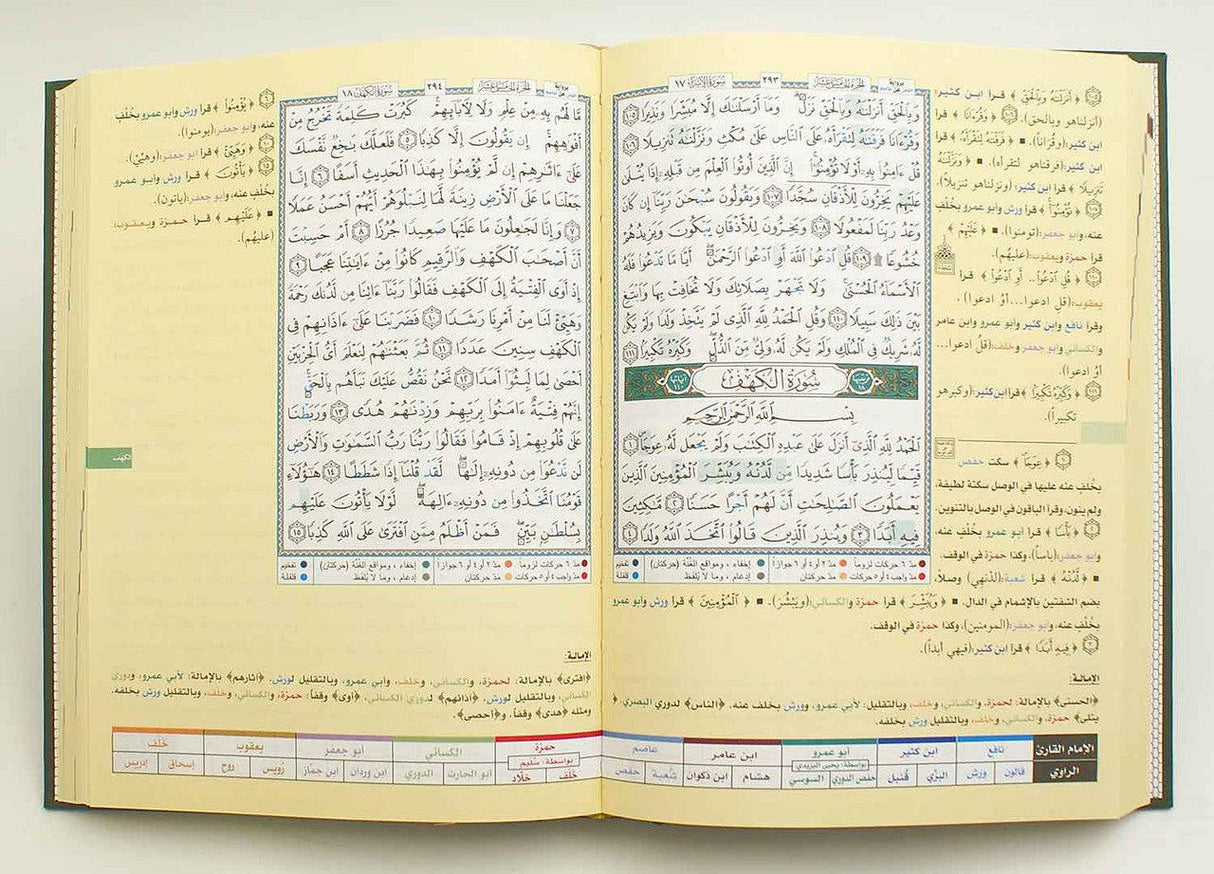 سورة الإسراء ١٧
٢٩٣
الجزء الخامس عشر
وَبِالْحَقِّ أَنزَلْنَٰهُ وَبِالْحَقِّ نَزَلَ وَمَا أَرْسَلْنَٰكَ إِلَّا مُبَشِّرًا وَنَذِيرًا ١٠٥
وَقُرْءَانًا فَرَقْنَٰهُ لِتَقْرَأَهُ عَلَى النَّاسِ عَلَىٰ مُكْثٍ وَنَزَّلْنَٰهُ تَنزِيلًا ١٠٦
قُلْ ءَامِنُوا بِهِ أَوْ لَا تُؤْمِنُوا إِنَّ الَّذِينَ أُوتُوا الْعِلْمَ مِن قَبْلِهِ إِذَا يُتْلَىٰ
عَلَيْهِمْ يَخِرُّونَ لِلْأَذْقَانِ سُجَّدًا ١٠٧ وَيَقُولُونَ سُبْحَٰنَ رَبِّنَا إِن كَانَ
وَعْدُ رَبِّنَا لَمَفْعُولًا ١٠٨ وَيَخِرُّونَ لِلْأَذْقَانِ يَبْكُونَ وَيَزِيدُهُمْ
خُشُوعًا ١٠٩ قُلِ ادْعُوا اللَّهَ أَوِ ادْعُوا الرَّحْمَٰنَ أَيًّا مَّا تَدْعُوا فَلَهُ
الْأَسْمَاءُ الْحُسْنَىٰ وَلَا تَجْهَرْ بِصَلَاتِكَ وَلَا تُخَافِتْ بِهَا وَابْتَغِ
بَيْنَ ذَٰلِكَ سَبِيلًا ١١٠ وَقُلِ الْحَمْدُ لِلَّهِ الَّذِي لَمْ يَتَّخِذْ وَلَدًا وَلَمْ يَكُن
لَّهُ شَرِيكٌ فِي الْمُلْكِ وَلَمْ يَكُن لَّهُ وَلِيٌّ مِّنَ الذُّلِّ وَكَبِّرْهُ تَكْبِيرًا ١١١
سُورَةُ الْكَهْفِ
بِسْمِ اللَّهِ الرَّحْمَٰنِ الرَّحِيمِ
الْحَمْدُ لِلَّهِ الَّذِي أَنزَلَ عَلَىٰ عَبْدِهِ الْكِتَٰبَ وَلَمْ يَجْعَل لَّهُ عِوَجًا ١
قَيِّمًا لِّيُنذِرَ بَأْسًا شَدِيدًا مِّن لَّدُنْهُ وَيُبَشِّرَ الْمُؤْمِنِينَ الَّذِينَ
يَعْمَلُونَ الصَّٰلِحَٰتِ أَنَّ لَهُمْ أَجْرًا حَسَنًا ٢ مَّٰكِثِينَ
فِيهِ أَبَدًا ٣ وَيُنذِرَ الَّذِينَ قَالُوا اتَّخَذَ اللَّهُ وَلَدًا ٤
مدّ ٦ حركات لزوماً مدّ ٢ أو ٤ أو ٦ جوازاً إخفاء، ومواقع الغنّة (حركتان) تفخيم
مدّ واجب ٤ أو ٥ حركات مدّ حركتان إدغام، وما لا يُلفظ قلقلة
﴿أَنزَلْنَٰهُ وَبِالْحَقِّ﴾ قرأ ابن كثير:
(أنزلناهو وبالحق). ﴿وَقُرْءَانًا﴾ قرأ
ابن كثير: (وقُرَاناً). ▪ ﴿فَرَقْنَٰهُ لِتَقْرَأَهُ﴾ قرأ
ابن كثير: (فرقناهو لتقرأه). ▪ ﴿وَنَزَّلْنَٰهُ
تَنزِيلًا﴾ قرأ ابن كثير: (ونزلناهو تنزيلاً).
﴿تُؤْمِنُوا﴾ قرأ ورش وأبو عمرو بخُلف
عنه، وأبو جعفر: (تومنوا). ▪ ﴿عَلَيْهِمْ﴾
قرأ حمزة ويعقوب: (عليهُم).
﴿قُلِ ادْعُوا.. أَوِ ادْعُوا﴾ قرأ
يعقوب: (قلِ ادعوا...أوُ ادعوا).
وقرأ نافع وابن كثير وأبو عمرو وابن عامر
والكسائي وأبو جعفر وخلف: (قلُ ادعوا...
أوُ ادعوا).
﴿وَكَبِّرْهُ تَكْبِيرًا﴾ قرأ ابن كثير: (وكبرهو
تكبيراً).
﴿عِوَجًا﴾ سكت حفص
بخُلف عنه عليها في الوصل سكتة لطيفة،
ولم ينون، وقرأ الباقون في الوصل بالتنوين.
﴿بَأْسًا﴾ قرأ أبو عمرو بخُلف عنه،
وأبو جعفر: (باساً)، وكذا حمزة في الوقف.
▪ ﴿لَّدُنْهُ﴾ قرأ شعبة: (لدْنِهِي) وصلاً،
بضم الشفتين بالإشمام في الدال. ▪ ﴿وَيُبَشِّرَ﴾ قرأ حمزة والكسائي: (ويَبْشُرَ). ▪ ﴿الْمُؤْمِنِينَ﴾ قرأ ورش وأبو عمرو
بخُلف عنه، وأبو جعفر: (المومنين)، وكذا حمزة في الوقف.
﴿فِيهِ أَبَدًا﴾ قرأ ابن كثير: (فيهي أبداً).
الإمالة:
﴿الحسنى﴾ بالإمالة: لحمزة، والكسائي، وخلف، وبالتقليل: لأبي عمرو، وورش بخلف عنه. ﴿الناس﴾ لدوري البصري. ﴿
يتلى﴾ حمزة، والكسائي، وخلف، وبالتقليل ورش بخلفه.
الإمام القارئ نافع ابن كثير أبو عمرو ابن عامر عاصم
بواسطة: يحيى اليزيدي
الراوي قالون ورش البزّي قُنبل حفص الدوري السوسي هشام ابن ذكوان شعبة حفص
سورة الكهف ١٨
٢٩٤
الجزء الخامس عشر
مَّا لَهُم بِهِ مِنْ عِلْمٍ وَلَا لِآبَائِهِمْ كَبُرَتْ كَلِمَةً تَخْرُجُ مِنْ
أَفْوَٰهِهِمْ إِن يَقُولُونَ إِلَّا كَذِبًا ٥ فَلَعَلَّكَ بَٰخِعٌ نَّفْسَكَ
عَلَىٰ ءَاثَٰرِهِمْ إِن لَّمْ يُؤْمِنُوا بِهَٰذَا الْحَدِيثِ أَسَفًا ٦ إِنَّا
جَعَلْنَا مَا عَلَى الْأَرْضِ زِينَةً لَّهَا لِنَبْلُوَهُمْ أَيُّهُمْ أَحْسَنُ عَمَلًا
٧ وَإِنَّا لَجَٰعِلُونَ مَا عَلَيْهَا صَعِيدًا جُرُزًا ٨ أَمْ حَسِبْتَ
أَنَّ أَصْحَٰبَ الْكَهْفِ وَالرَّقِيمِ كَانُوا مِنْ ءَايَٰتِنَا عَجَبًا ٩
إِذْ أَوَى الْفِتْيَةُ إِلَى الْكَهْفِ فَقَالُوا رَبَّنَا ءَاتِنَا مِن لَّدُنكَ رَحْمَةً
وَهَيِّئْ لَنَا مِنْ أَمْرِنَا رَشَدًا ١٠ فَضَرَبْنَا عَلَىٰ ءَاذَانِهِمْ فِي
الْكَهْفِ سِنِينَ عَدَدًا ١١ ثُمَّ بَعَثْنَٰهُمْ لِنَعْلَمَ أَيُّ الْحِزْبَيْنِ
أَحْصَىٰ لِمَا لَبِثُوا أَمَدًا ١٢ نَّحْنُ نَقُصُّ عَلَيْكَ نَبَأَهُم بِالْحَقِّ
إِنَّهُمْ فِتْيَةٌ ءَامَنُوا بِرَبِّهِمْ وَزِدْنَٰهُمْ هُدًى ١٣ وَرَبَطْنَا
عَلَىٰ قُلُوبِهِمْ إِذْ قَامُوا فَقَالُوا رَبُّنَا رَبُّ السَّمَٰوَٰتِ وَالْأَرْضِ
لَن نَّدْعُوَا مِن دُونِهِ إِلَٰهًا لَّقَدْ قُلْنَا إِذًا شَطَطًا ١٤ هَٰؤُلَاءِ
قَوْمُنَا اتَّخَذُوا مِن دُونِهِ ءَالِهَةً لَّوْلَا يَأْتُونَ عَلَيْهِم
بِسُلْطَٰنٍ بَيِّنٍ فَمَنْ أَظْلَمُ مِمَّنِ افْتَرَىٰ عَلَى اللَّهِ كَذِبًا ١٥
مدّ ٦ حركات لزوماً مدّ ٢ أو ٤ أو ٦ جوازاً إخفاء، ومواقع الغنّة (حركتان) تفخيم
مدّ واجب ٤ أو ٥ حركات مدّ حركتان إدغام، وما لا يُلفظ قلقلة
﴿يُؤْمِنُوا﴾ قرأ ورش وأبو عمرو بخُلف
عنه، وأبو جعفر: (يومنوا).
﴿وَهَيِّئْ﴾ قرأ أبو جعفر: (وهيِّيْ).
﴿يَأْتُونَ﴾ قرأ ورش وأبو عمرو
بخُلف عنه، وأبو جعفر: (ياتون).
▪ ﴿عَلَيْهِم﴾ قرأ حمزة ويعقوب:
(عليهُم).
الكهف
الإمالة:
﴿افترى﴾ بالإمالة: لحمزة، والكسائي، وخلف، وأبي عمرو، وبالتقليل لورش. ﴿آثارهم﴾ بالإمالة: لأبي عمرو، ودوري
الكسائي، وبالتقليل لورش. ﴿آذانهم﴾ لدوري الكسائي. ﴿أوى﴾ وقفاً: حمزة، والكسائي، وخلف، وبالتقليل ورش بخلفه.
ومثله ﴿هدى﴾ وقفاً. و﴿أحصى﴾.
حمزة الكسائي أبو جعفر يعقوب خلف
بواسطة: سليم
خلف خلّاد أبو الحارث الدوري ابن وردان ابن جمّاز رُويس روح إسحاق إدريس